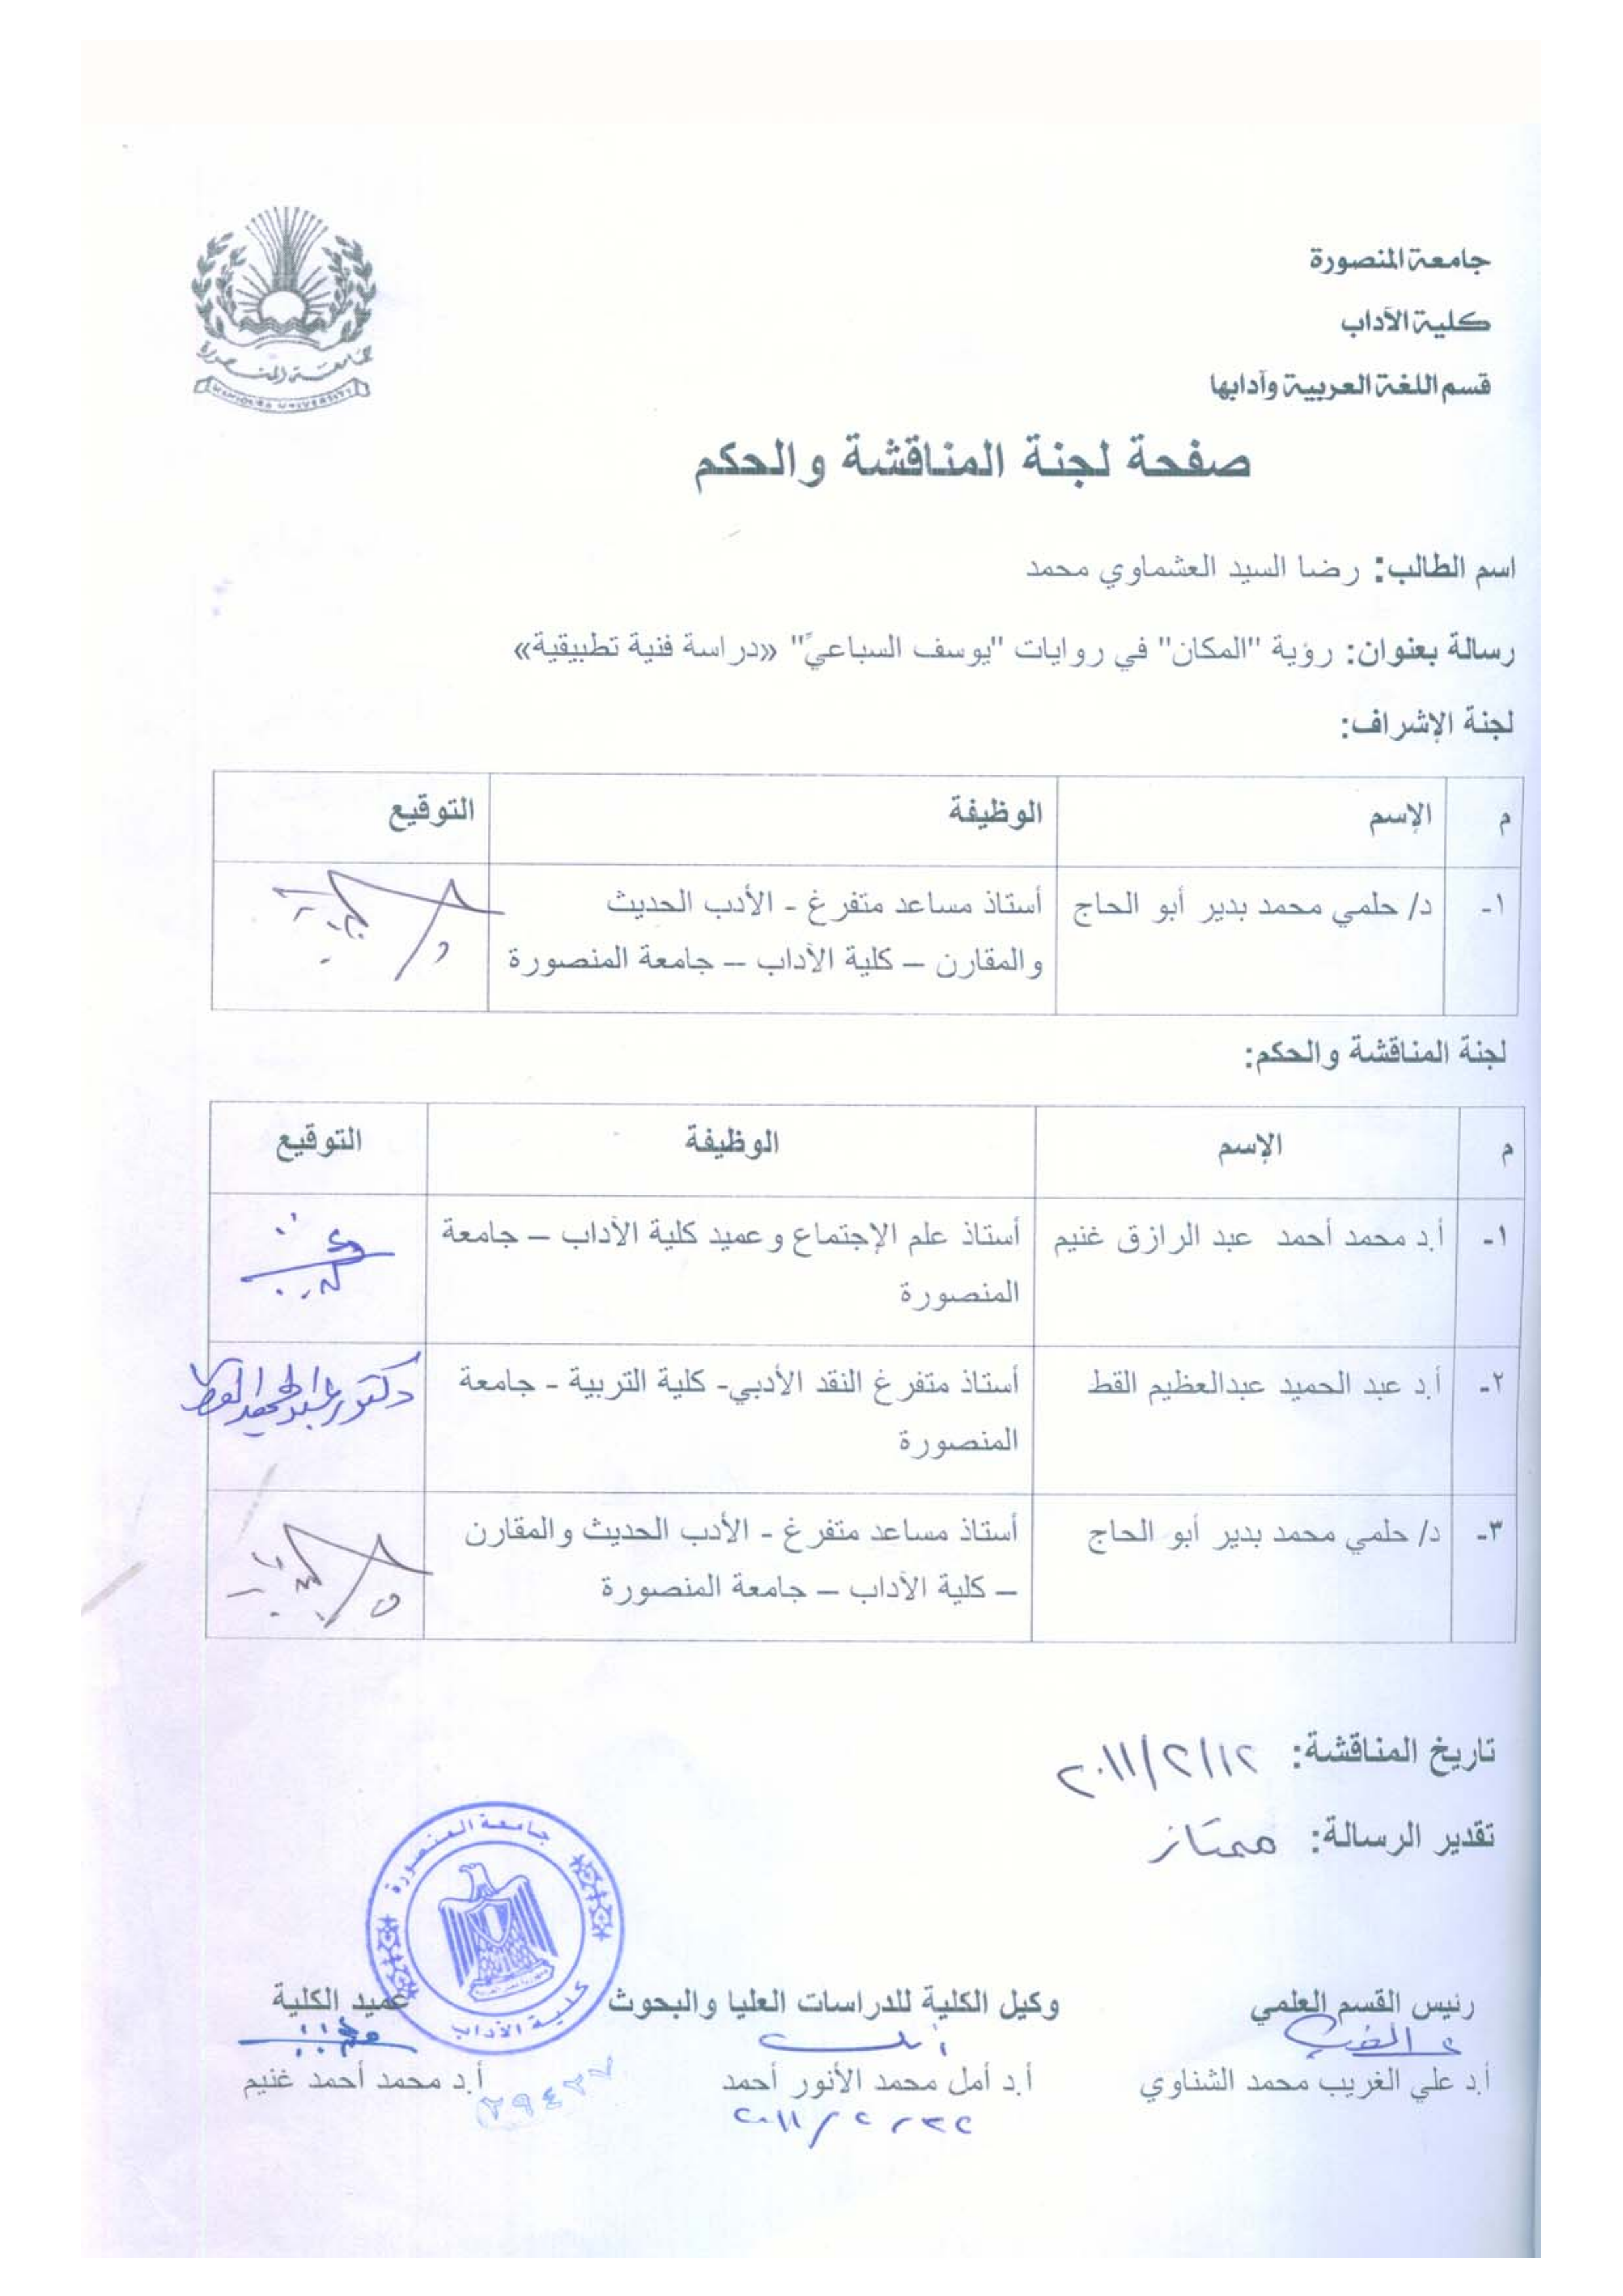 جامعة المنصورة
كلية الآداب
قسم اللغة العربية وآدابها
جامعة المنصورة
MANSOURA UNIVERSITY
صفحة لجنة المناقشة والحكم
اسم الطالب: رضا السيد العشماوي محمد
رسالة بعنوان: رؤية "المكان" في روايات "يوسف السباعيِّ" «دراسة فنية تطبيقية»
لجنة الإشراف:
م الإسم الوظيفة التوقيع
١- د/ حلمي محمد بدير أبو الحاج أستاذ مساعد متفرغ - الأدب الحديث
والمقارن – كلية الآداب – جامعة المنصورة
لجنة المناقشة والحكم:
م الإسم الوظيفة التوقيع
١- أ.د محمد أحمد عبد الرازق غنيم أستاذ علم الإجتماع وعميد كلية الآداب – جامعة
المنصورة
٢- أ.د عبد الحميد عبدالعظيم القط أستاذ متفرغ النقد الأدبي- كلية التربية - جامعة
المنصورة
دكتور عبد الحميد القط
٣- د/ حلمي محمد بدير أبو الحاج أستاذ مساعد متفرغ - الأدب الحديث والمقارن
– كلية الآداب – جامعة المنصورة
تاريخ المناقشة: ٢٠١١/٢/١٢
تقدير الرسالة: ممتاز
جامعة المنصورة
كلية الآداب
رئيس القسم العلمي وكيل الكلية للدراسات العليا والبحوث عميد الكلية
أ.د علي الغريب محمد الشناوي أ.د أمل محمد الأنور أحمد أ.د محمد أحمد غنيم